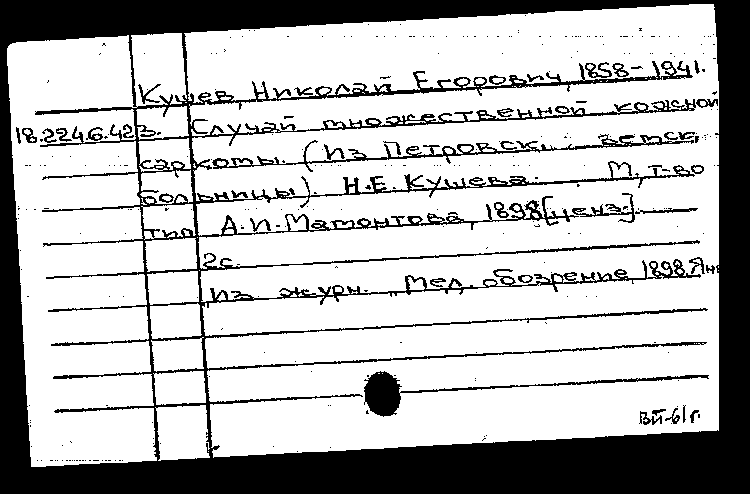 Кушев, Николай Егорович, 1858-1941.
18.224.6.423. Случай множественной кожной
саркомы. (Из Петровск. земск.
больницы). Н.Е. Кушева. М., т-во
тип А.И. Мамонтова, 1898 [ценз.].
2с.
Из журн. "Мед. обозрение, 1898, Янв
ВЙ-61г.